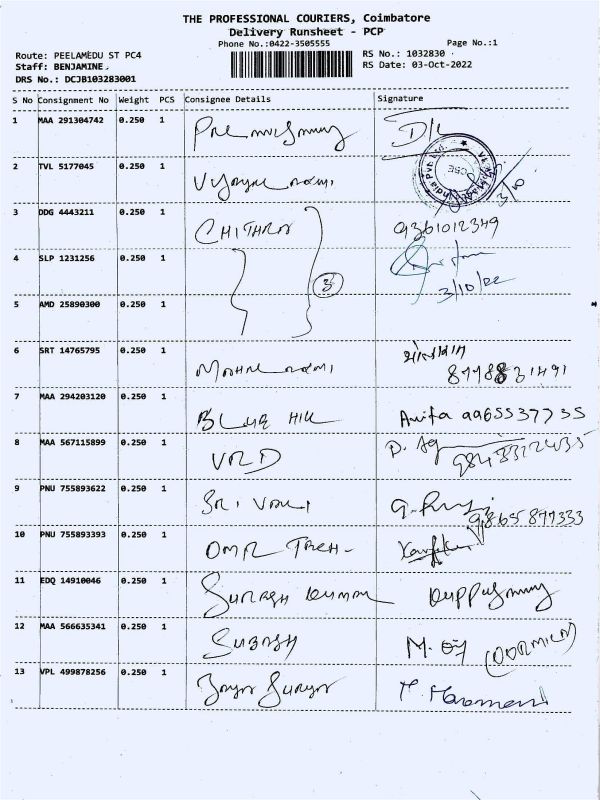 THE PROFESSIONAL COURIERS, Coimbatore
Delivery Runsheet - PCP
Phone No.:0422-3505555 Page No.:1
Route: PEELAMEDU ST PC4 RS No.: 1032830
Staff: BENJAMINE. RS Date: 03-Oct-2022
DRS No.: DCJB103283001
S No Consignment No Weight PCS Consignee Details Signature
1 MAA 291304742 0.250 1
2 TVL 5177045 0.250 1
3 DDG 4443211 0.250 1 CHITHRA 9361012349
4 SLP 1231256 0.250 1 3
3/10/22
5 AMD 25890300 0.250 1
6 SRT 14765795 0.250 1
7 MAA 294203120 0.250 1 BLUE HILL Anita 9965537735
8 MAA 567115899 0.250 1 VRD
9 PNU 755893622 0.250 1 SRI VARI 9865877333
10 PNU 755893393 0.250 1 OMR TECH-
11 EDQ 14910046 0.250 1 SURESH KUMAR Kuppusamy
12 MAA 566635341 0.250 1 SUBASH
13 VPL 499878256 0.250 1 Jaya Surya